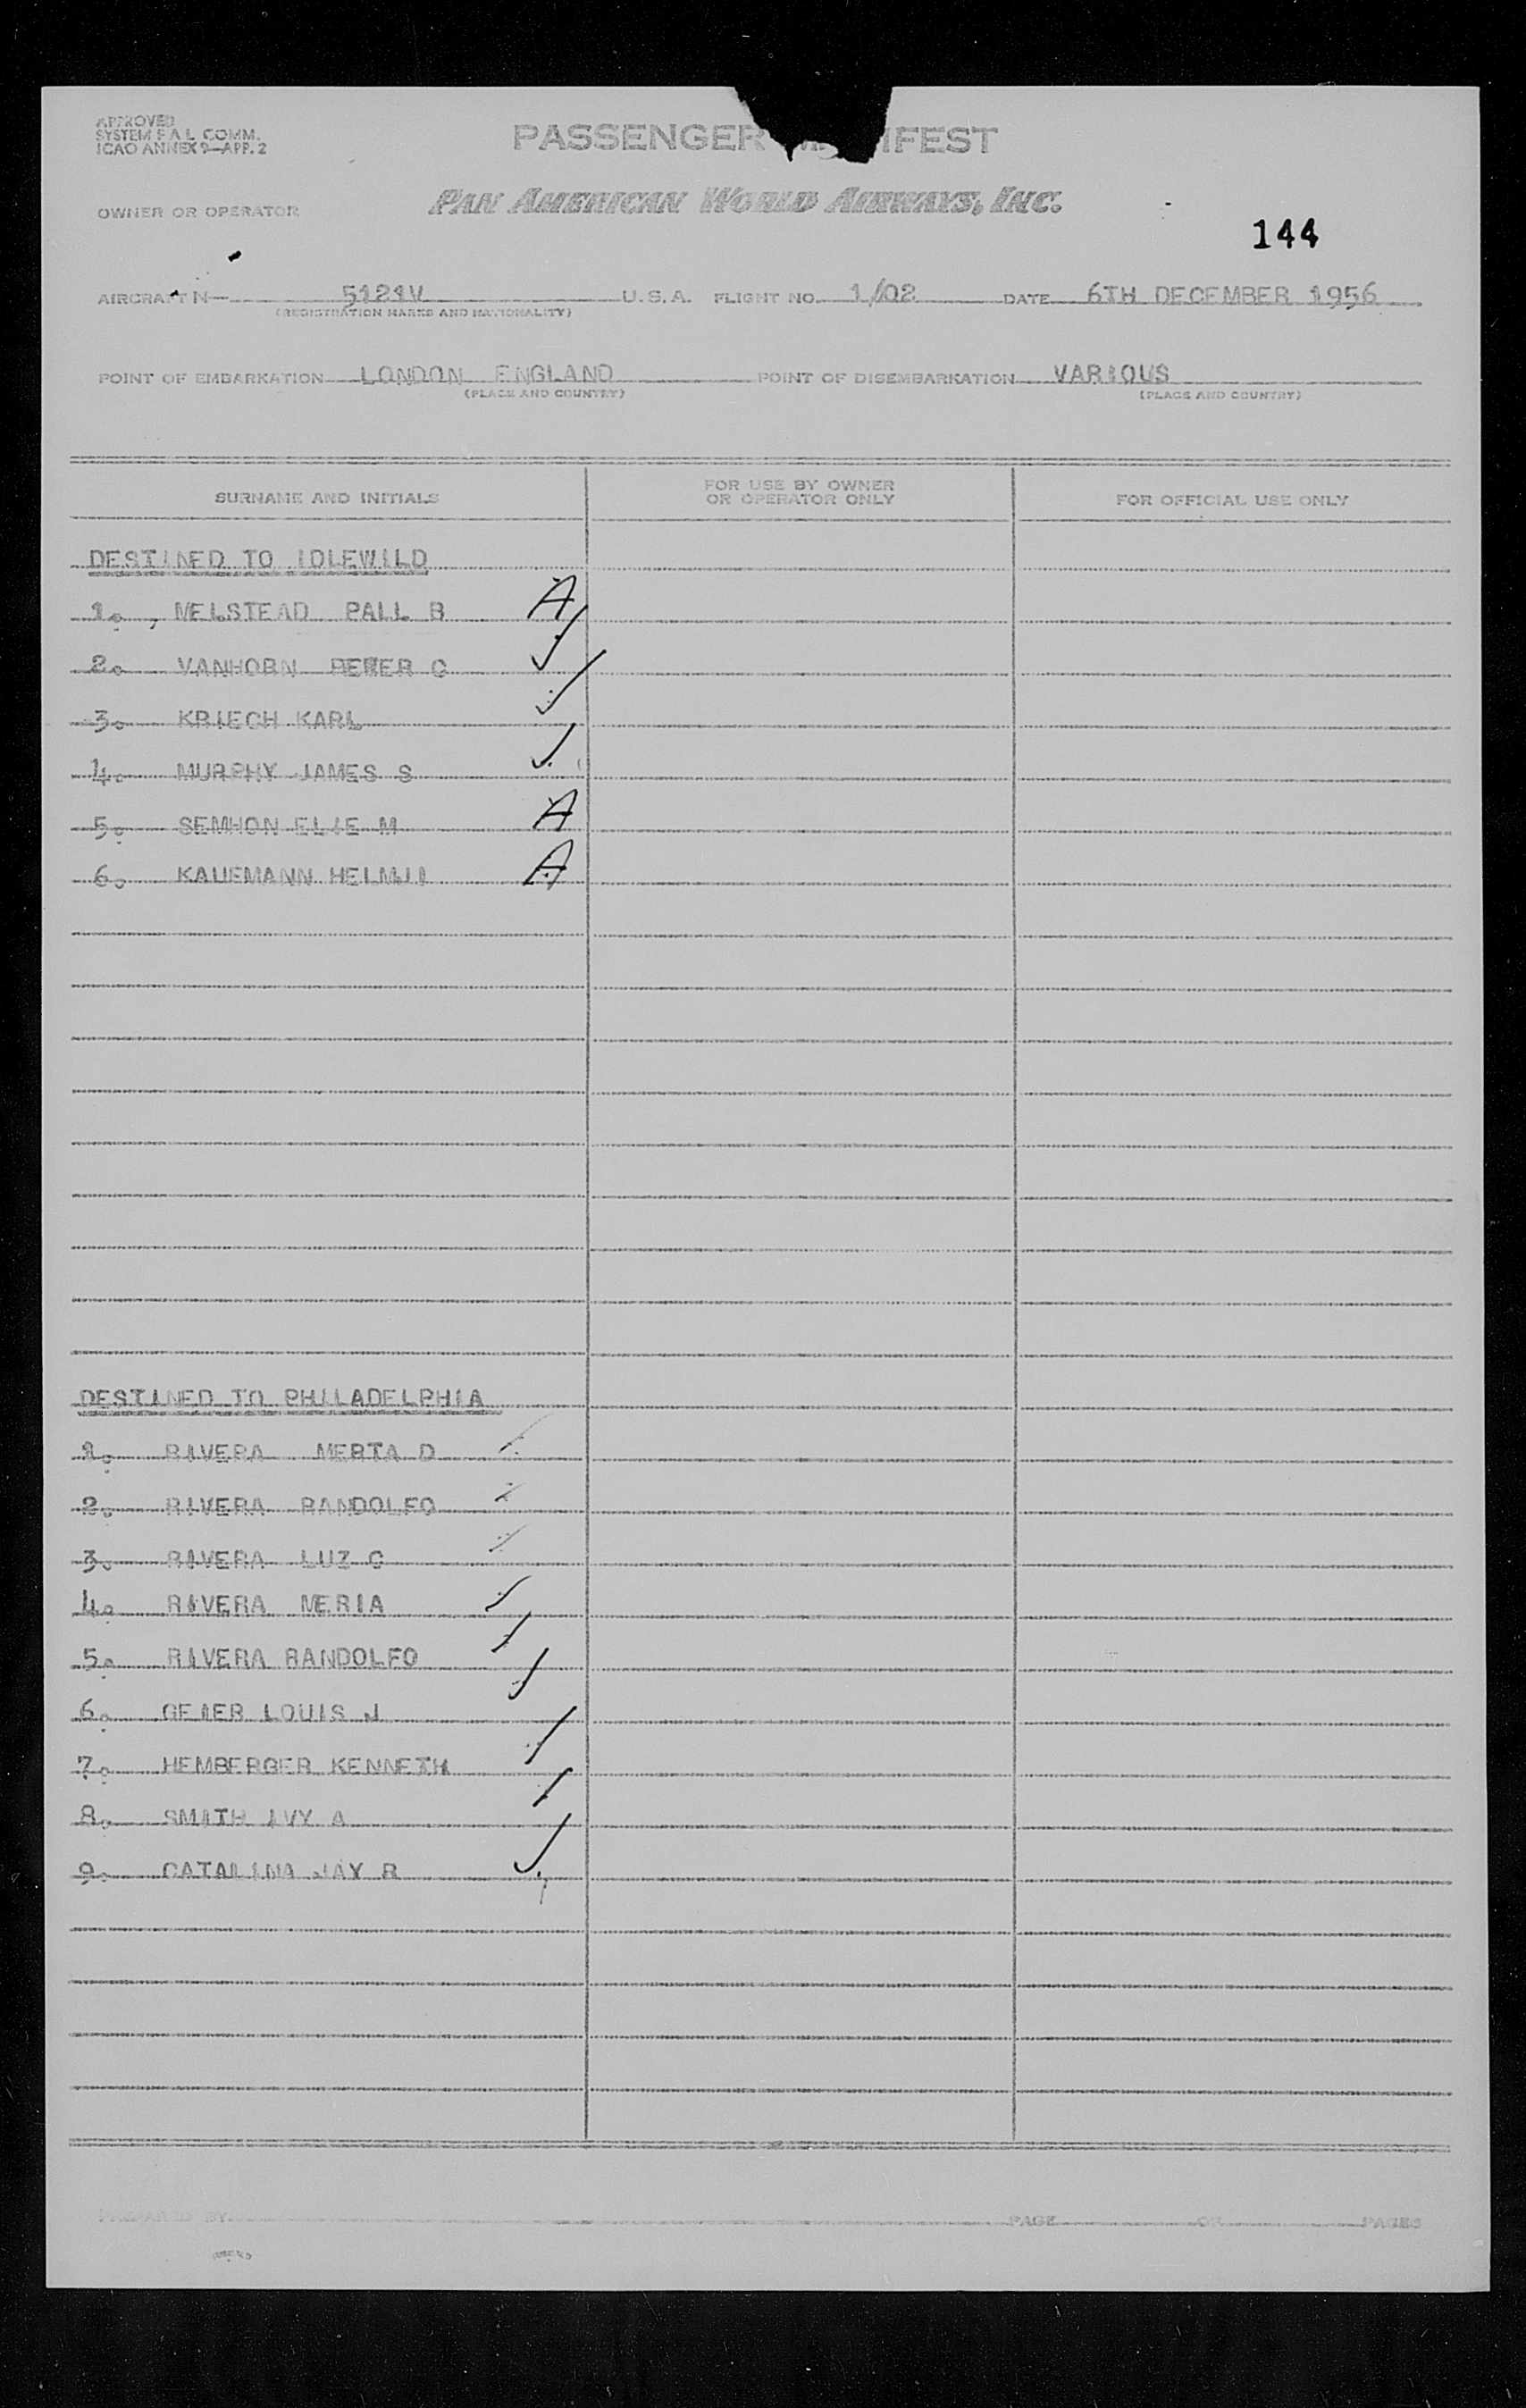 APPROVED
SYSTEM F A L COMM.
ICAO ANNEX 9—APP. 2
PASSENGER MANIFEST
OWNER OR OPERATOR
PAN AMERICAN WORLD AIRWAYS, INC.
144
AIRCRAFT N— 5121V U.S.A. FLIGHT NO. 1/02 DATE 6TH DECEMBER 1956
(REGISTRATION MARKS AND NATIONALITY)
POINT OF EMBARKATION LONDON ENGLAND POINT OF DISEMBARKATION VARIOUS
(PLACE AND COUNTRY) (PLACE AND COUNTRY)
SURNAME AND INITIALS FOR USE BY OWNER OR OPERATOR ONLY FOR OFFICIAL USE ONLY
DESTINED TO IDLEWILD
1. , MELSTEAD PALL B A
2. VANHORN PETER C
3. KRIECH KARL
4. MURPHY JAMES S
5. SEMHON ELIE M A
6. KAUFMANN A
DESTINED TO PHILADELPHIA
1. RIVERA MERTA D
2. RIVERA RANDOLFO
3. RIVERA LUZ C
4. RIVERA MERIA
5. RIVERA RANDOLFO
6. GEIER LOUIS J
7. HEMBERGER KENNETH
8. SMITH IVY A
9. CATALINA JAY R
PREPARED BY PAGE OF PAGES